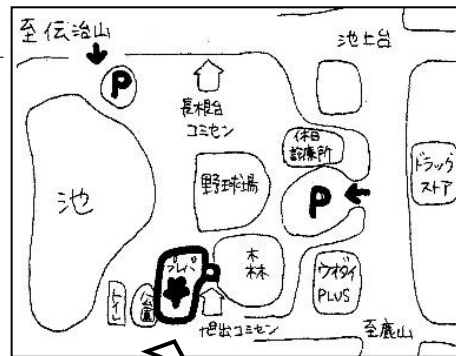 至伝治山
池上台
P
長根台
コミセン
休日
診療所
ドラッグ
ストア
野球場
池
P
プレパ
森
ウオダイ
PLUS
トイレ
公園
旭出コミセン
至鹿山